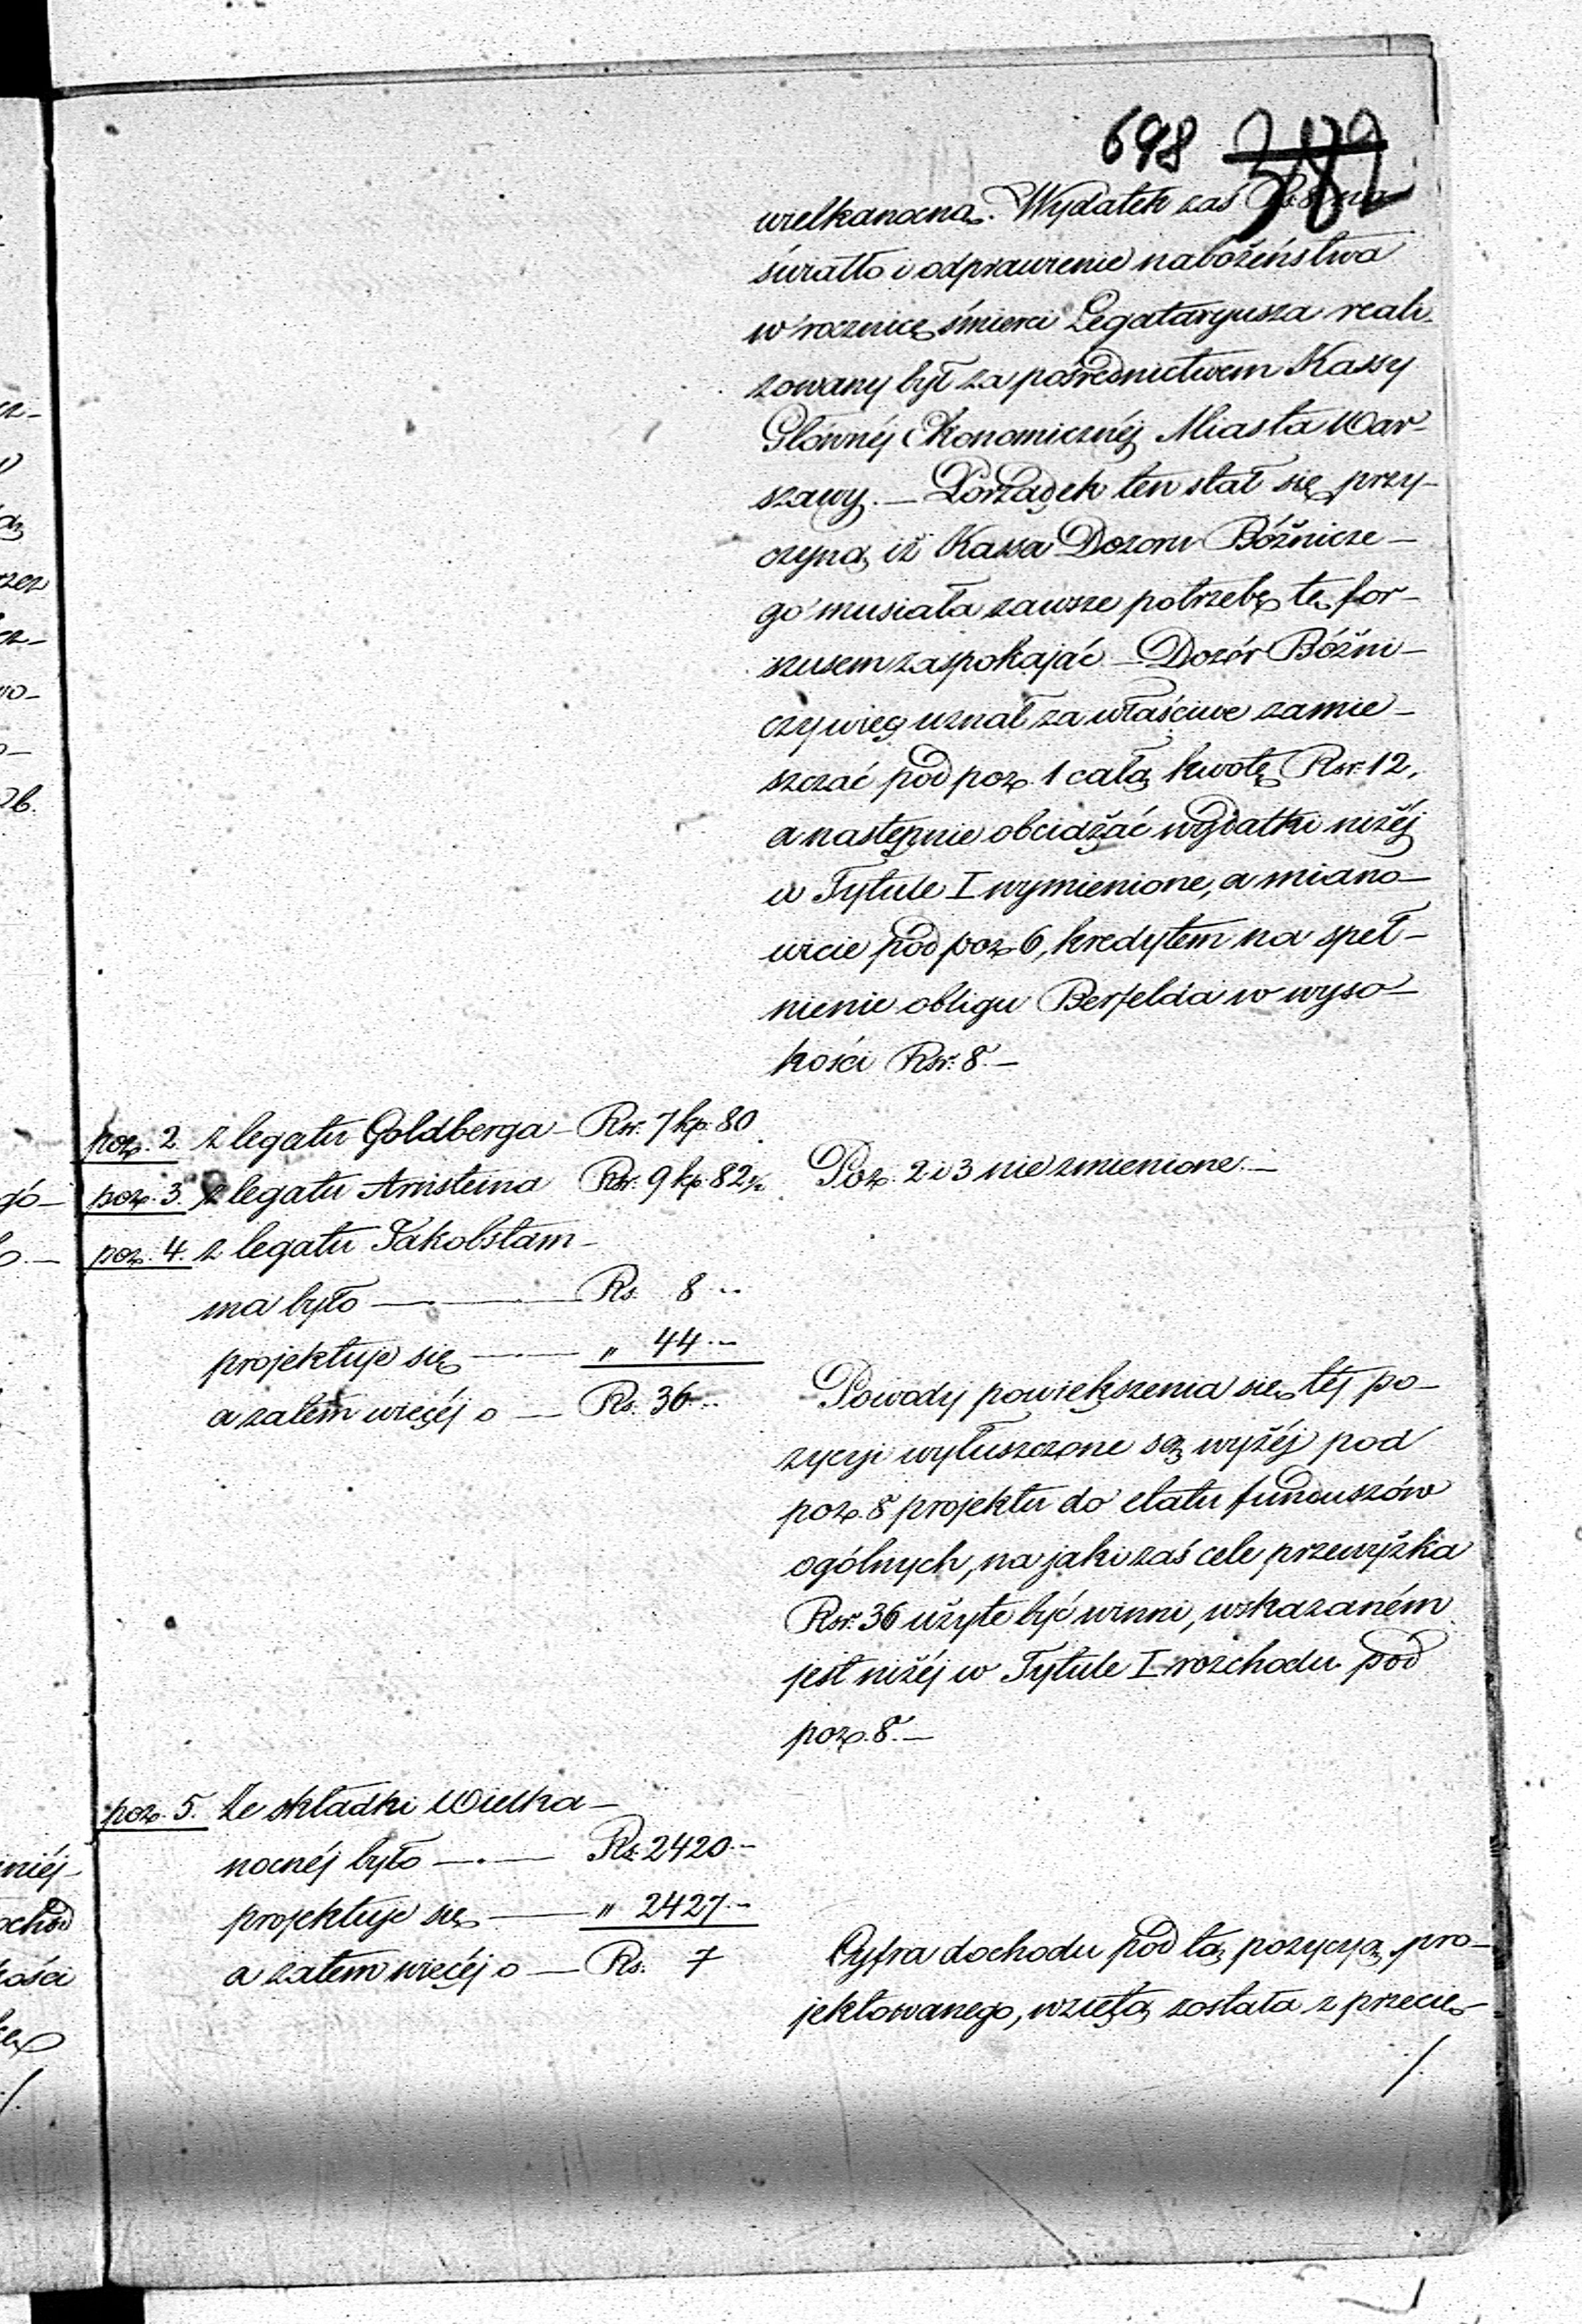 698 382
wielkanocną. Wydatek zaś Rs. 8 na
światło i odprawienie nabożeństwa
w rocznicę śmierci Legataryusza reali-
zowany był za pośrednictwem Kassy
Głównéj Ekonomicznéj Miasta War-
szawy. — Porządek ten stał się przy-
czyną, iż Kassa Dozoru Bóżnicze-
go musiała zawsze potrzebę tę for-
szusem zaspokajać — Dozór Bóżni-
czy więc uznał za właściwe zamie-
szczać pod poz. 1 całą kwotę Rsr. 12,
a następnie obciążać wydatki niżéj
w Tytule I wymienione, a miano-
wicie pod poz. 6, kredytem na speł-
nienie obligu Berfelda w wyso-
kości Rsr. 8. —
poz. 2 z legatu Goldberga — Rsr. 7 kp. 80
poz. 3. z legatu Arnsteina Rsr. 9 kp. 82½ Poz. 2 i 3 nie zmienione. —
poz. 4. z legatu Jakobstam-
ma było — Rs. 8 "
projektuje się — " 44 . —
a zatém więcéj o — Rs. 36 . "
Powody powiększenia się téj po-
zycyi wyłuszczone są wyżéj pod
poz. 8 projektu do etatu funduszów
ogólnych, na jaki zaś cele przewyżka
Rsr. 36 użyte być winni, wskazaném
jest niżéj w Tytule I rozchodu pod
poz. 8. —
poz. 5. Ze składki Wielka-
nocnéj było — Rs. 2420 . —
projektuje się — " 2427 . —
a zatem więcéj o — Rs. 7
Cyfra dochodu pod tą pozycyą pro-
jektowanego, wziętą została z przecię-
./.